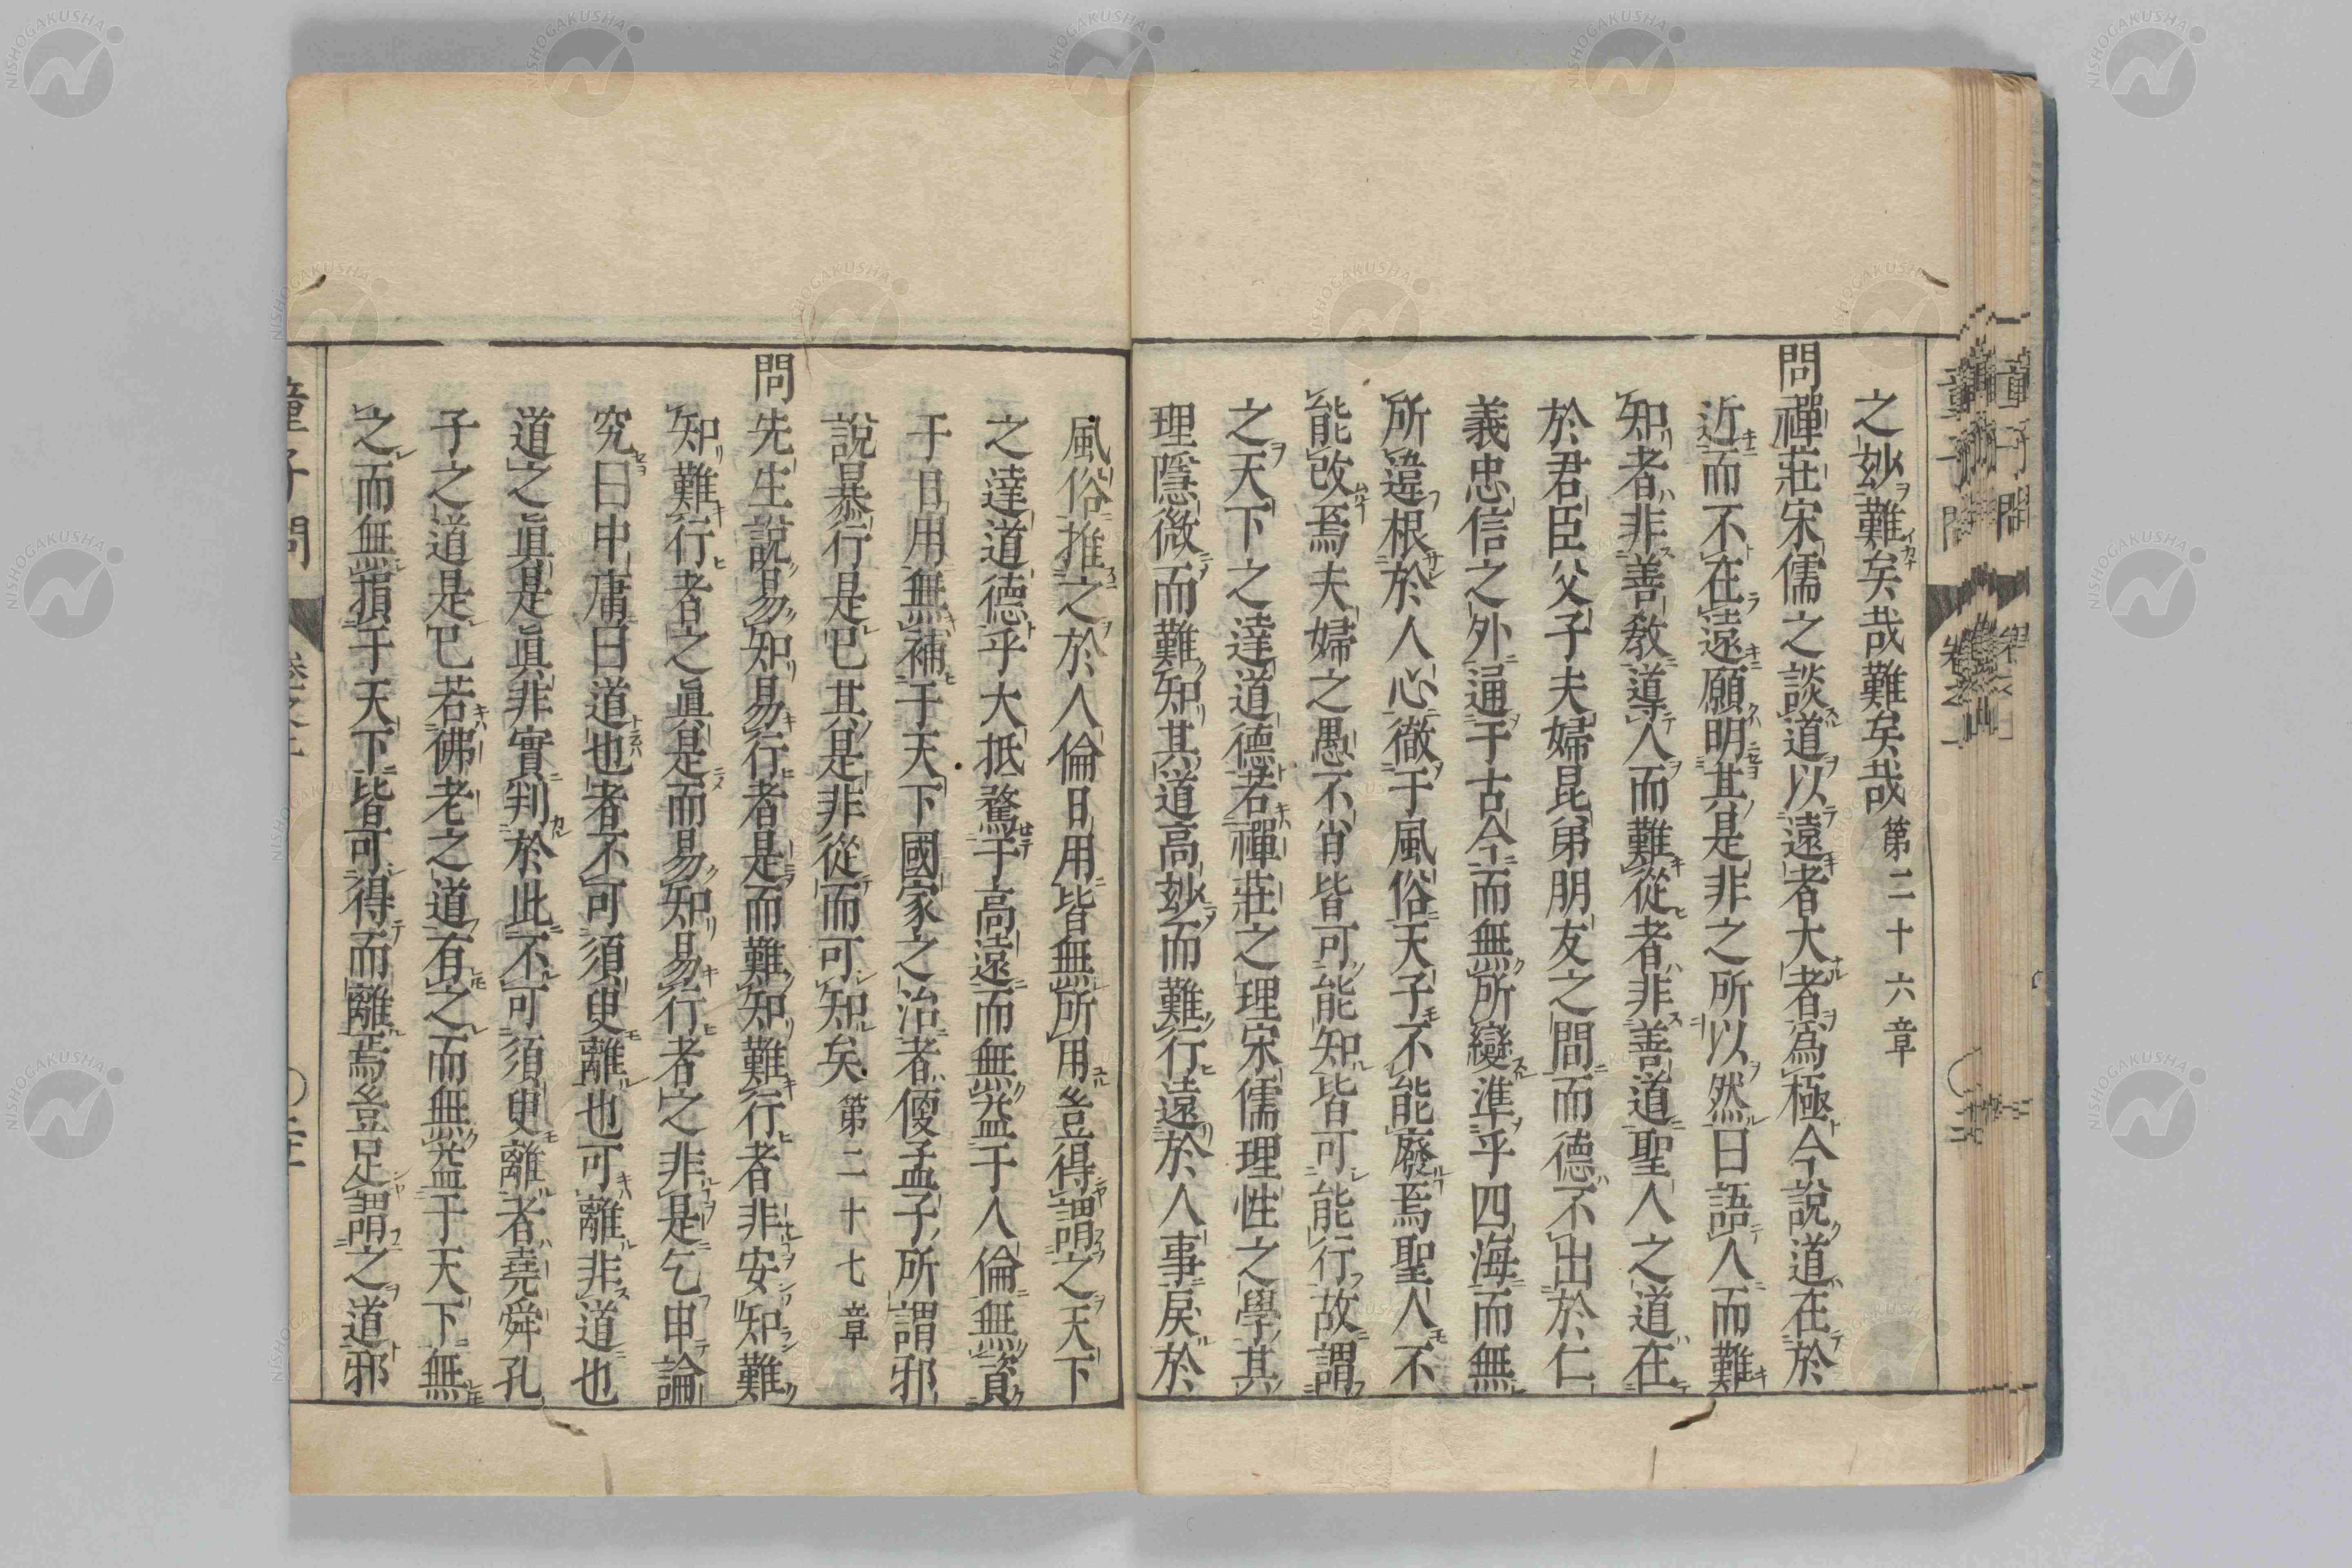 之妙難矣哉難矣哉第二十六章
問禪莊宋儒之談道以遠者大者爲極今說道在於
近而不在遠願明其是非之所以然曰語人而難
知者非善教導人而難從者非善道聖人之道在
於君臣父子夫婦昆弟朋友之間而德不出於仁
義忠信之外通于古今而無所變準乎四海而無
所違根於人心徹于風俗天子不能廢焉聖人不
能改焉夫婦之愚不肖皆可能知皆可能行故謂
之天下之達道德若禪莊之理宋儒理性之學其
理隱微而難知其道高妙而難行遠於人事戾於
風俗推之於人倫日用皆無所用豈得謂之天下
之達道德乎大抵騖于高遠而無益于人倫無資
于日用無補于天下國家之治者便孟子所謂邪
說暴行是已其是非從而可知矣第二十七章
問先生說易知易行者是而難知難行者非安知難
知難行者之眞是而易知易行者之非是乞申論
究曰中庸曰道也者不可須臾離也可離非道也
道之眞是眞非實判於此不可須臾離者堯舜孔
子之道是已若佛老之道有之而無益于天下無
之而無損于天下皆可得而離焉豈足謂之道邪
童子問 卷之上
NISHOGAKUSHA